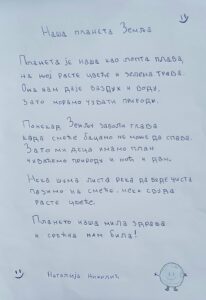 Наша планета Земља
Планета је наша као лопта плава,
на њој расте цвеће и зелена трава.
Она нам даје ваздух и воду,
зато морамо чувати природу.
Понекад Земљу заболи глава
када смеће бацамо не може да спава.
Зато ми деца имамо план
чуваћемо природу и ноћ и дан.
Нека шума листа река да буде чиста
пазимо на смеће, нека свуда
расте цвеће.
Плането наша мила здрава
и срећна нам била!
Наталија Николић